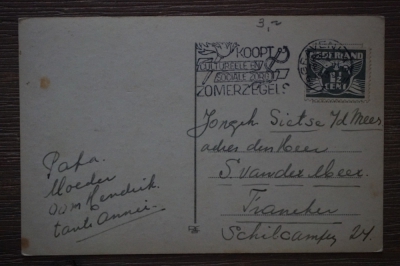 3,-
KOOPT
CULTURELE EN
SOCIALE ZORG
ZOMERZEGELS
NEDERLAND
1½
CENT
Jongeh Sietse v/d Meer
adres den Heer
S. van der Meer.
Franeker
Schilcampen 24.
Papa.
Moeder
oom Hendrik.
tante Annie.